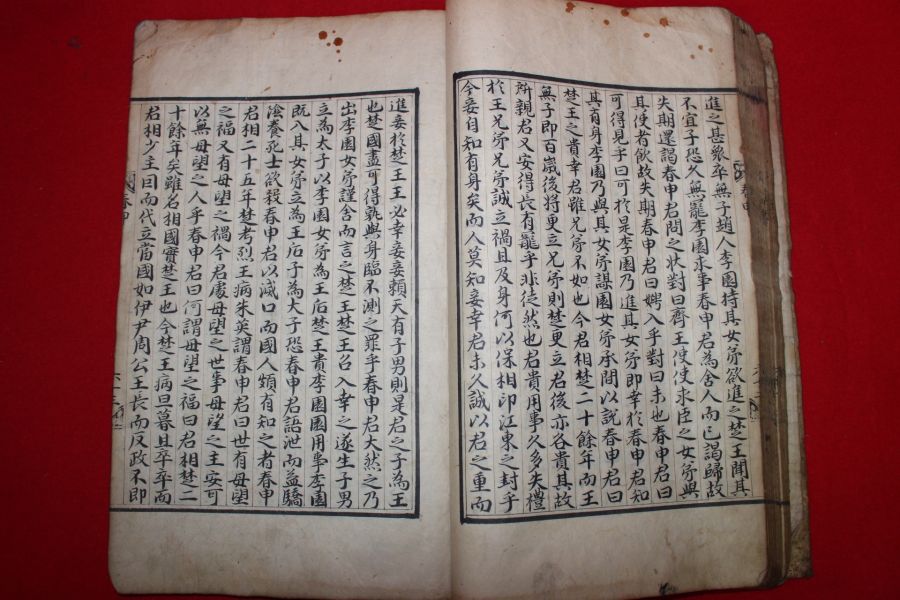 進之甚衆卒無子趙人李園持其女弟欲進之楚王聞其
不宜子恐久無寵李園求事春申君為舍人而已謁歸故
失期還謁春申君問之狀對曰齊王使使求臣之女弟與
其使者飲故失期春申君曰娉入乎對曰未也春申君曰
可得見乎曰可於是李園乃進其女弟即幸於春申君知
其有身李園乃與其女弟謀園女弟承間以說春申君曰
楚王之貴幸君雖兄弟不如也今君相楚二十餘年而王
無子即百歲後將更立兄弟則楚更立君後亦各貴其故
所親君又安得長有寵乎非徒然也君貴用事久多失禮
於王兄弟兄弟誠立禍且及身何以保相印江東之封乎
今妾自知有身矣而人莫知妾幸君未久誠以君之重而
進妾於楚王王必幸妾妾頼天有子男則是君之子為王
也楚國盡可得孰與身臨不測之罪乎春申君大然之乃
出李園女弟謹舍而言之楚王楚王召入幸之遂生子男
立為太子以李園女弟為王后楚王貴李園園用事李園
既入其女弟立為王后子為太子恐春申君語泄而益驕
陰養死士欲殺春申君以滅口而國人頗有知之者春申
君相二十五年楚考烈王病朱英謂春申君曰世有毋望
之福又有毋望之禍今君處毋望之世事毋望之主安可
以無毋望之人乎春申君曰何謂毋望之福曰君相楚二
十餘年矣雖名相國實楚王也今楚王病旦暮且卒卒而
君相少主因而代立當國如伊尹周公王長而反政不即